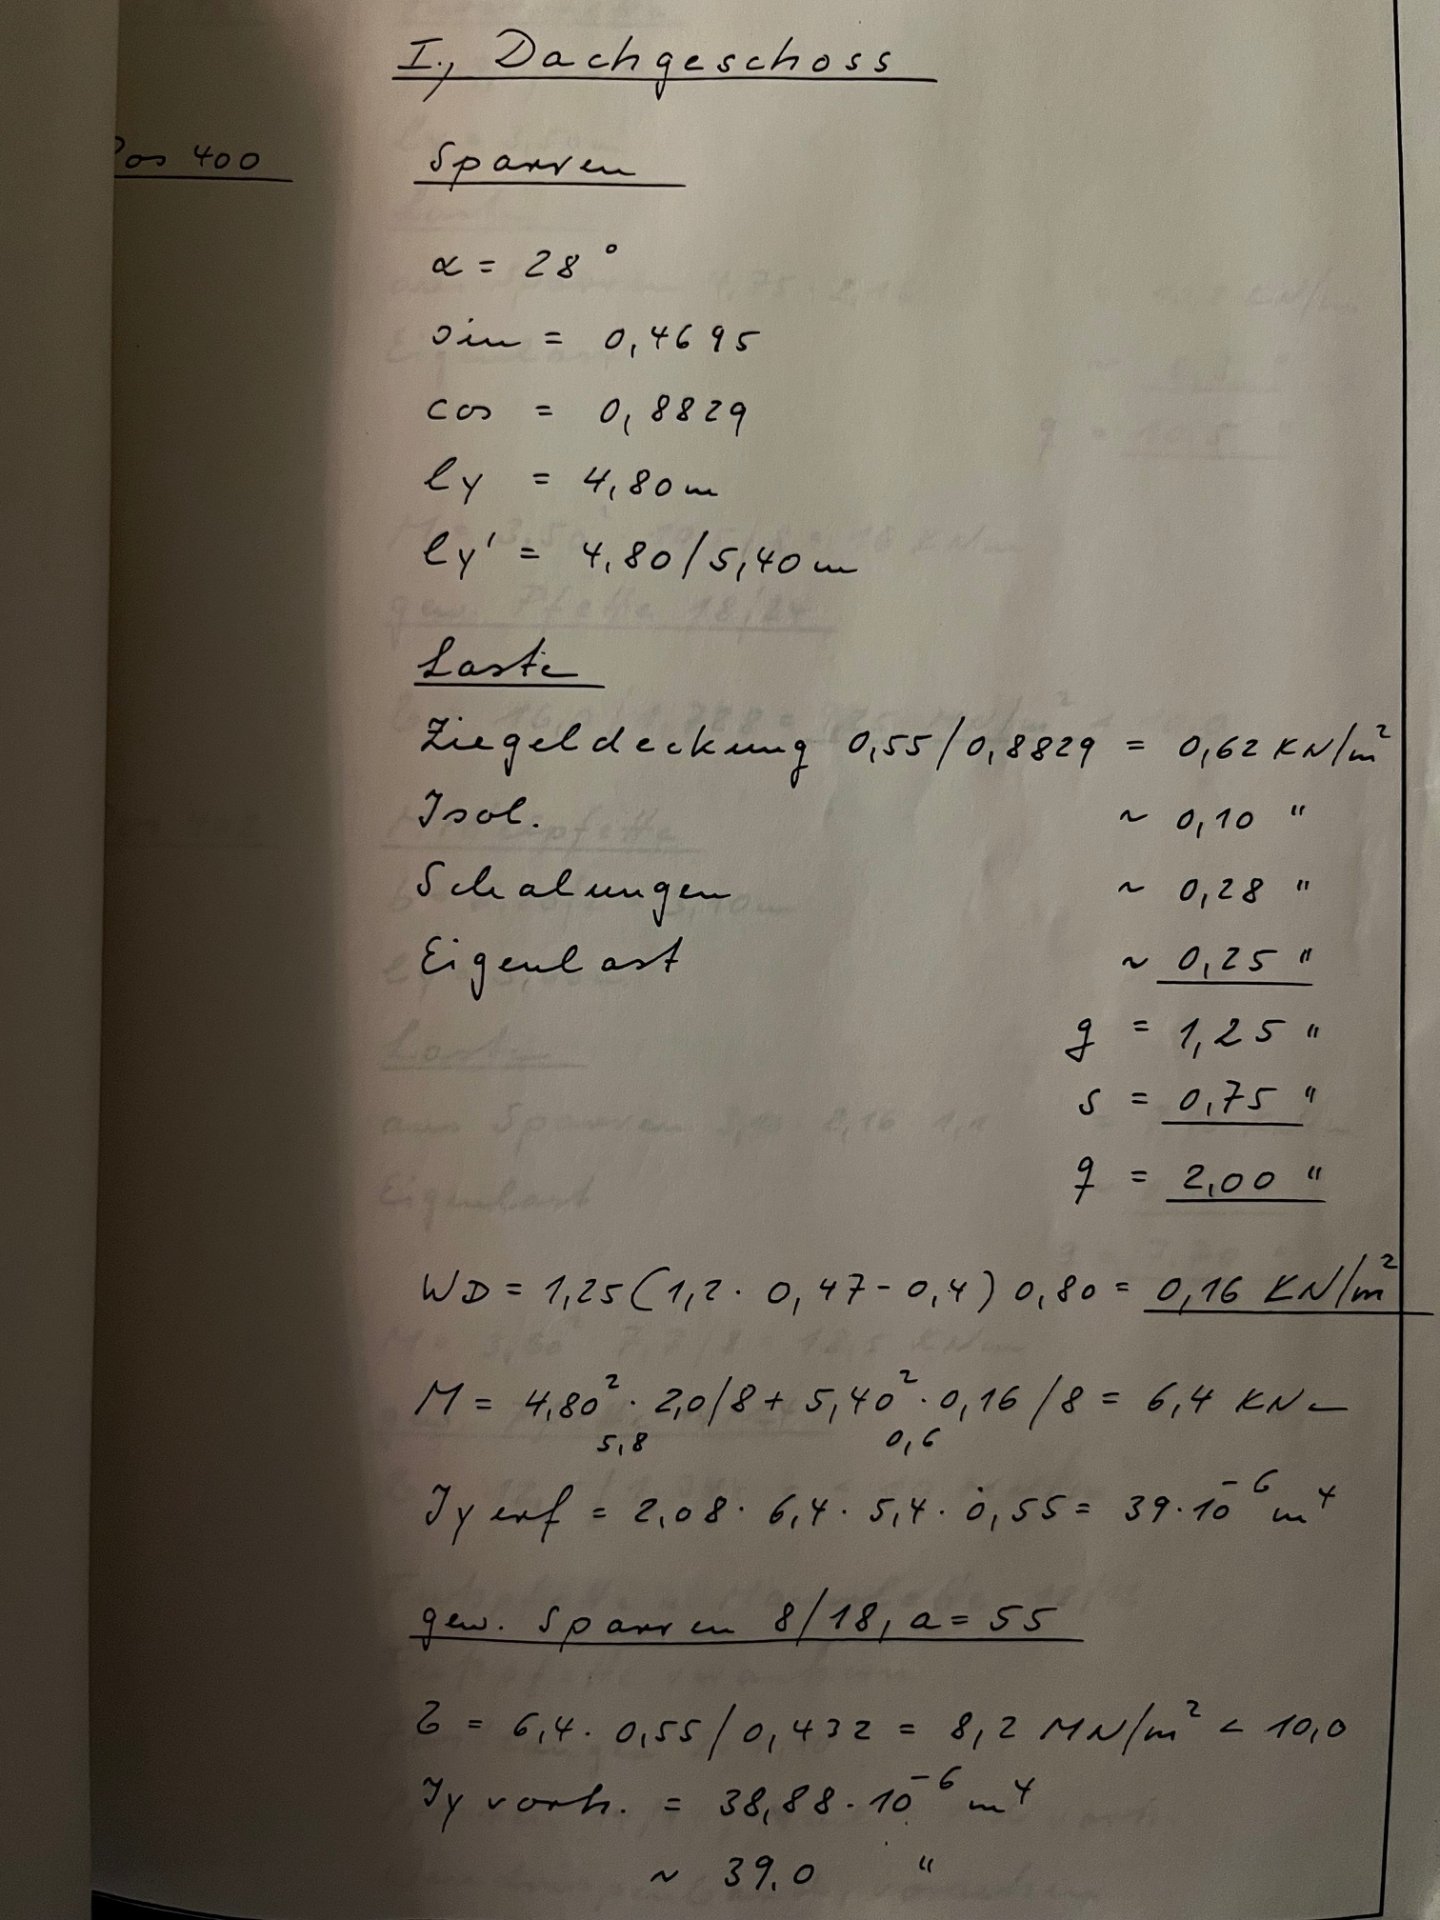 I., Dachgeschoss
Pos 400 Sparren
α = 28°
sin = 0,4695
cos = 0,8829
ly = 4,80 m
ly' = 4,80/5,40 m
Laste
Ziegeldeckung 0,55/0,8829 = 0,62 KN/m²
Isol. ~ 0,10 "
Schalungen ~ 0,28 "
Eigenlast ~ 0,25 "
g = 1,25 "
s = 0,75 "
q = 2,00 "
WD = 1,25 (1,2 · 0,47 - 0,4) 0,80 = 0,16 KN/m²
M = 4,80² · 2,0/8 + 5,40² · 0,16/8 = 6,4 KNm
5,8 0,6
Jy erf = 2,08 · 6,4 · 5,4 · 0,55 = 39 · 10⁻⁶ m⁴
gew. Sparren 8/18, a = 55
σ = 6,4 · 0,55/0,432 = 8,2 MN/m² < 10,0
Jy vorh. = 38,88 · 10⁻⁶ m⁴
~ 39.0 "